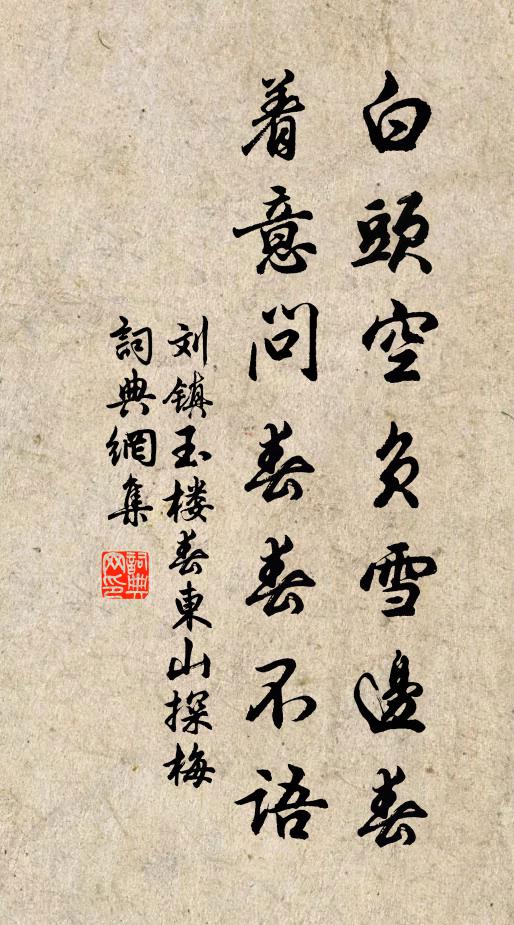 白頭空負雪邊春
着意問春春不語
刘镇玉楼春東山探梅
詞典網集
詞典网印